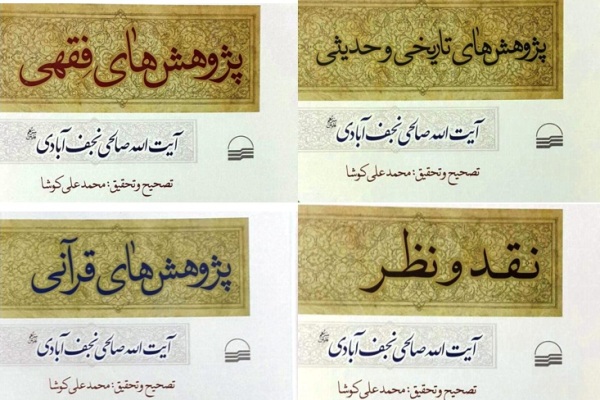 پژوهش‌های فقهی
آیت الله صالحی نجف آبادی
تصحیح و تحقیق: محمد علی کوشا
پژوهش‌های تاریخی و حدیثی
آیت الله صالحی نجف آبادی
تصحیح و تحقیق: محمد علی کوشا
پژوهش‌های قرآنی
آیت الله صالحی نجف آبادی
تصحیح و تحقیق: محمد علی کوشا
نقد و نظر
آیت الله صالحی نجف آبادی
تصحیح و تحقیق: محمد علی کوشا